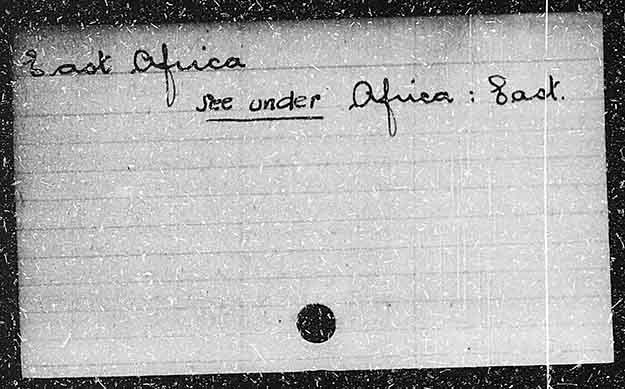 East Africa
see under Africa : East.